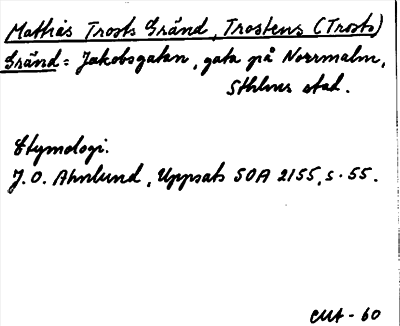 Mathias Trosts Gränd, Trostens (Trosts)
Gränd = Jakobsgatan, gata på Norrmalm,
Sthlms stad.
Etymologi.
J. O. Ahnlund, Uppsats SOA 2155, s. 55.
CMA - 60